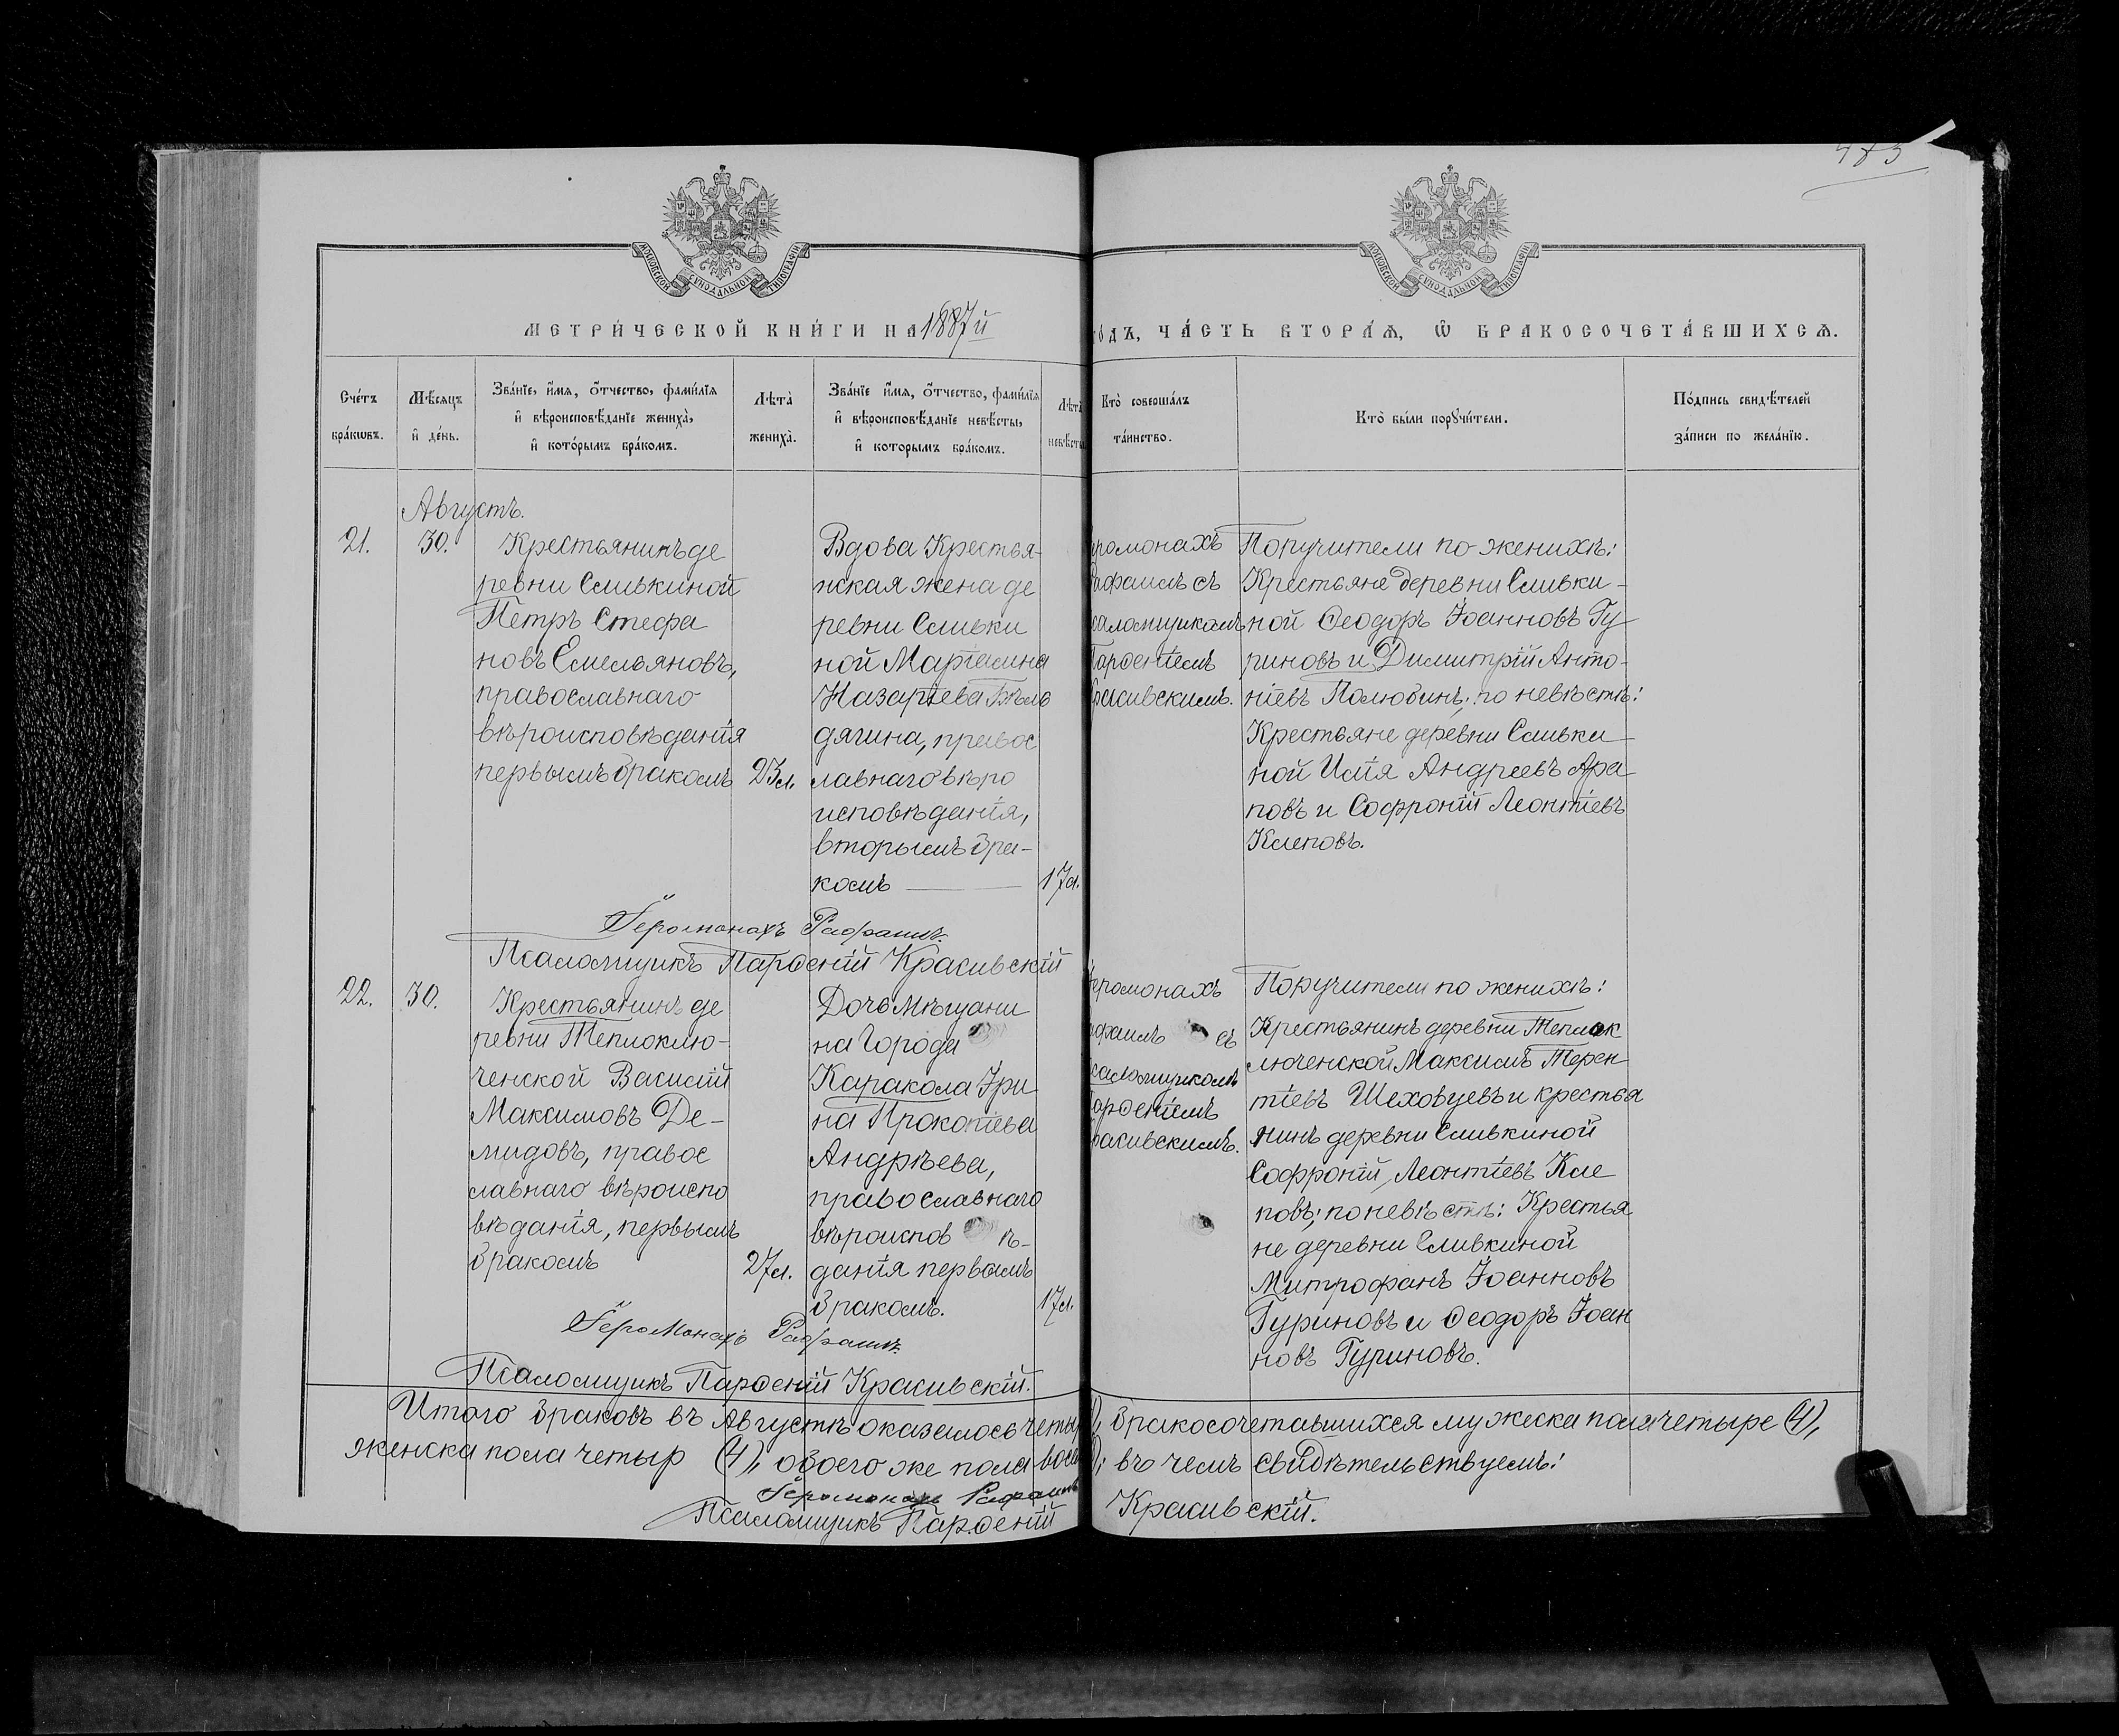 483
МОСКОВСКОЙ СѴНОДАЛЬНОЙ ТИПОГРАФІИ
МОСКОВСКОЙ СѴНОДАЛЬНОЙ ТИПОГРАФІИ
МЕТРИ́ЧЕСКОЙ КНИ́ГИ НА 1887й
го́дъ, ЧА́СТЬ ВТОРА́Ѧ, Ѽ БРАКОСОЧЕТА́ВШИХСѦ.
Сче́тъ
бра́кѡвъ.
Мѣ́сяцъ
и҆ де́нь.
Зва́нїе, и҆́мя, ѻ҆́тчество, фами́лїя
и҆ вѣроисповѣ́данїе жениха̀,
и҆ кото́рымъ бра́комъ.
Лѣта̀
жениха̀.
Зва́нїе и҆́мя, ѻ҆́тчество, фами́лїя
и҆ вѣроисповѣ́данїе невѣ́сты,
и҆ которымъ бра́комъ.
Лѣта̀
невѣ́сты
Кто̀ соверша́лъ
та́инство.
Кто̀ бы́ли порꙋчи́тели.
По́дпись свидѣ́телей
за́писи по жела́нїю.
Августъ.
21.
30.
Крестьянинъ де
ревни Сливкиной
Петръ Стефа
новъ Емельяновъ,
православнаго
вѣроисповѣданія
первымъ бракомъ
23л.
Вдова Крестья-
нская жена де
ревни Сливки
ной Маріамна
Назаріева Бѣло
дягина, правос
лавнаго вѣро
исповѣданія,
вторымъ бра-
комъ
17л.
еромонахъ
афаилъ съ
саломщикомъ
Парѳеніемъ
Красивскимъ.
Поручители по женихѣ:
Крестьяне деревни Сливки-
ной Ѳеодоръ Іоанновъ Гу
риновъ и Димитрій Анто-
ніевъ Полюбинъ; по невѣстѣ:
Крестьяне деревни Сливки
ной Илія Андреевъ Ара
повъ и Софроній Леонтіевъ
Клеповъ.
Іеромонахъ Рафаилъ.
Псаломщикъ Парѳеній Красивскій
22.
30.
Крестьянинъ де
ревни Теплоклю-
ченской Василій
Максимовъ Де-
мидовъ, правос
лавнаго вѣроиспо
вѣданія, первымъ
бракомъ
27л.
Дочь мѣщани
на города
Каракола Ири
на Прокопіева
Андрѣева,
православнаго
вѣроиспов ѣ-
данія первымъ
бракомъ.
17л.
еромонахъ
афаилъ съ
саломщикомъ
Парѳеніемъ
расивскимъ.
Поручители по женихѣ:
Крестьянинъ деревни Теплок
люченской Максимъ Терен
тіевъ Шеховцевъ и крестья
нинъ деревни Сливкиной
Софроній Леонтіевъ Кле
повъ; по невѣстѣ: Крестья
не деревни Сливкиной
Митрофанъ Іоанновъ
Гуриновъ и Ѳеодоръ Іоан
новъ Гуриновъ.
Іеромонахъ Рафаилъ.
Псаломщикъ Парѳеній Красивскій.
Итого браковъ въ Августѣ оказалось четыр бракосочетавшихся мужеска пола четыре (4),
женска пола четыр (4), обоего же пола восе въ чемъ свидѣтельствуемъ:
Іеромонахъ Рафаилъ
Псаломщикъ Парѳеній Красивскій.